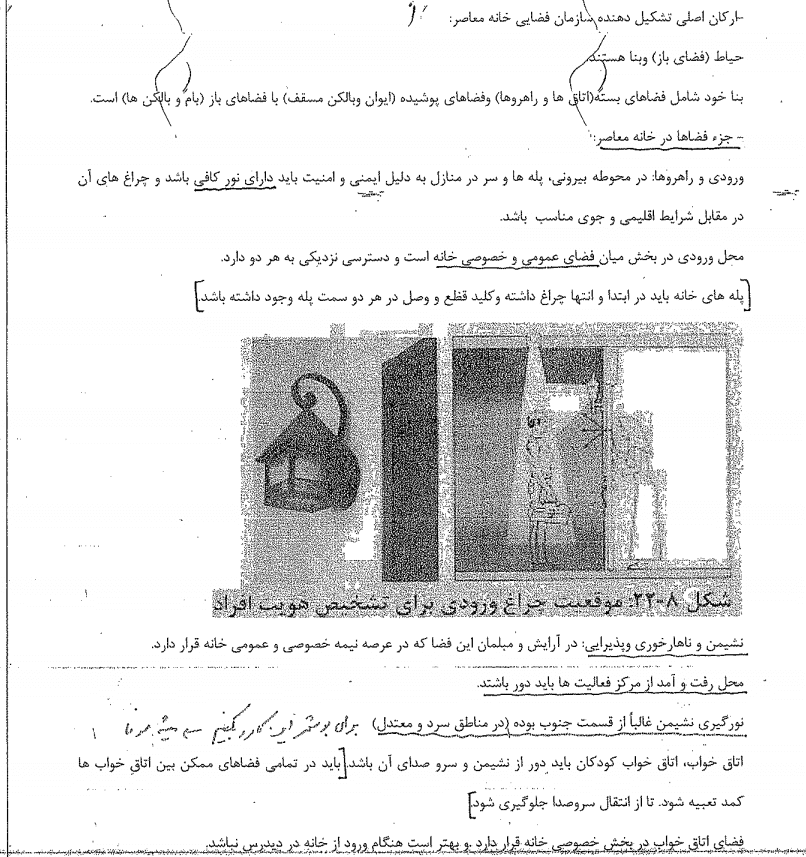 -ارکان اصلی تشکیل دهنده سازمان فضایی خانه معاصر:
حیاط (فضای باز) وبنا هستند.
بنا خود شامل فضاهای بسته(اتاق ها و راهروها) وفضاهای پوشیده (ایوان وبالکن مسقف) با فضاهای باز (بام و بالکن ها) است.
- جزء فضاها در خانه معاصر:
ورودی و راهروها: در محوطه بیرونی، پله ها و سر در منازل به دلیل ایمنی و امنیت باید دارای نور کافی باشد و چراغ های آن
در مقابل شرایط اقلیمی و جوی مناسب باشد.
محل ورودی در بخش میان فضای عمومی و خصوصی خانه است و دسترسی نزدیکی به هر دو دارد.
[پله های خانه باید در ابتدا و انتها چراغ داشته وکلید قظع و وصل در هر دو سمت پله وجود داشته باشد.]
شکل ۸-۲۲: موقعیت چراغ ورودی برای تشخیص هویت افراد
نشیمن و ناهارخوری وپذیرایی: در آرایش و مبلمان این فضا که در عرصه نیمه خصوصی و عمومی خانه قرار دارد.
محل رفت و آمد از مرکز فعالیت ها باید دور باشتد.
نورگیری نشیمن غالباً از قسمت جنوب بوده (در مناطق سرد و معتدل) برای این کار
اتاق خواب، اتاق خواب کودکان باید دور از نشیمن و سرو صدای آن باشد.[باید در تمامی فضاهای ممکن بین اتاق خواب ها
کمد تعبیه شود. تا از انتقال سروصدا جلوگیری شود.]
فضای اتاق خواب در بخش خصوصی خانه قرار دارد .و بهتر است هنگام ورود از خانه در دیدرس نباشد.